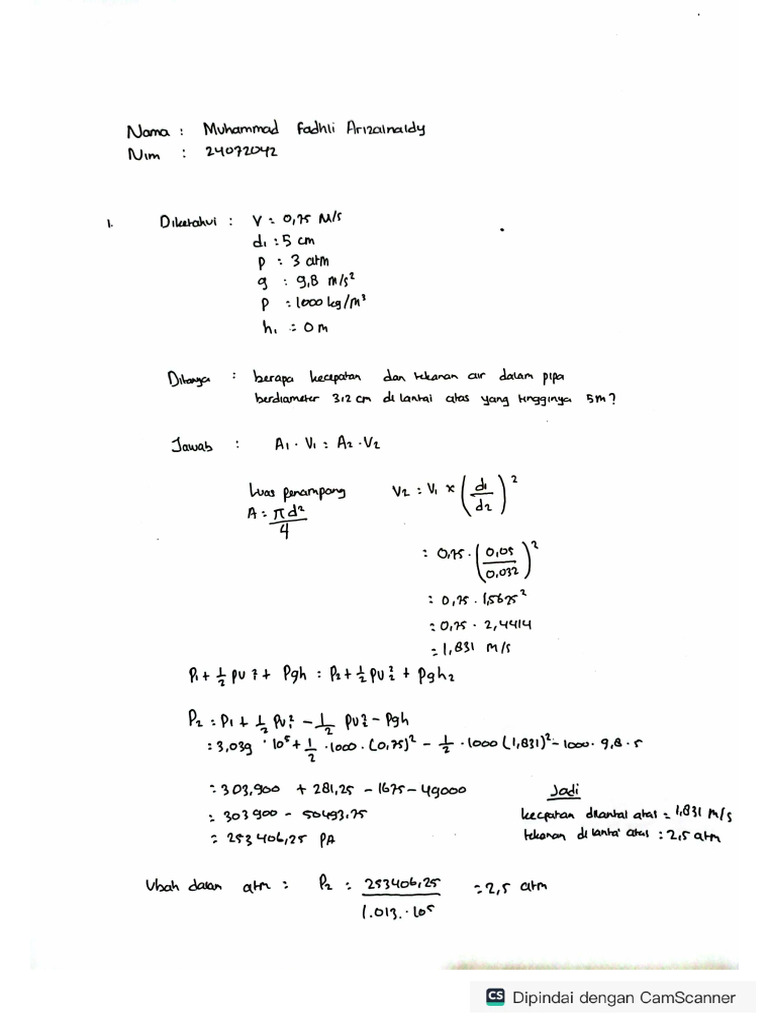 Nama : Muhammad Fadhli Arizalnaldy
Nim : 24072042
1. Diketahui : V : 0,75 M/s
d₁ : 5 cm
P : 3 atm
g : 9,8 m/s²
ρ : 1000 kg/m³
h₁ : 0 m
Ditanya : berapa kecepatan dan tekanan air dalam pipa
berdiameter 3,2 cm di lantai atas yang tingginya 5m?
Jawab : A₁ · V₁ = A₂ · V₂
Luas penampang
A = πd²/4
V₂ = V₁ × (d₁/d₂)²
= 0,75 · (0,05/0,032)²
= 0,75 · 1,5625²
= 0,75 · 2,4414
= 1,831 M/s
P₁ + ½ ρv₁² + ρgh = P₂ + ½ ρv₂² + ρgh₂
P₂ = P₁ + ½ ρv₁² – ½ ρv₂² – ρgh
= 3,039 · 10⁵ + ½ · 1000 · (0,75)² – ½ · 1000 (1,831)² – 1000 · 9,8 · 5
= 303,900 + 281,25 – 1675 – 49000
= 303900 – 50493,75
= 253406,25 PA
Jadi
kecepatan dilantai atas = 1,831 M/s
tekanan di lantai atas : 2,5 atm
Ubah dalam atm : P₂ = 253406,25 / 1.013. · 10⁵ = 2,5 atm
CS Dipindai dengan CamScanner